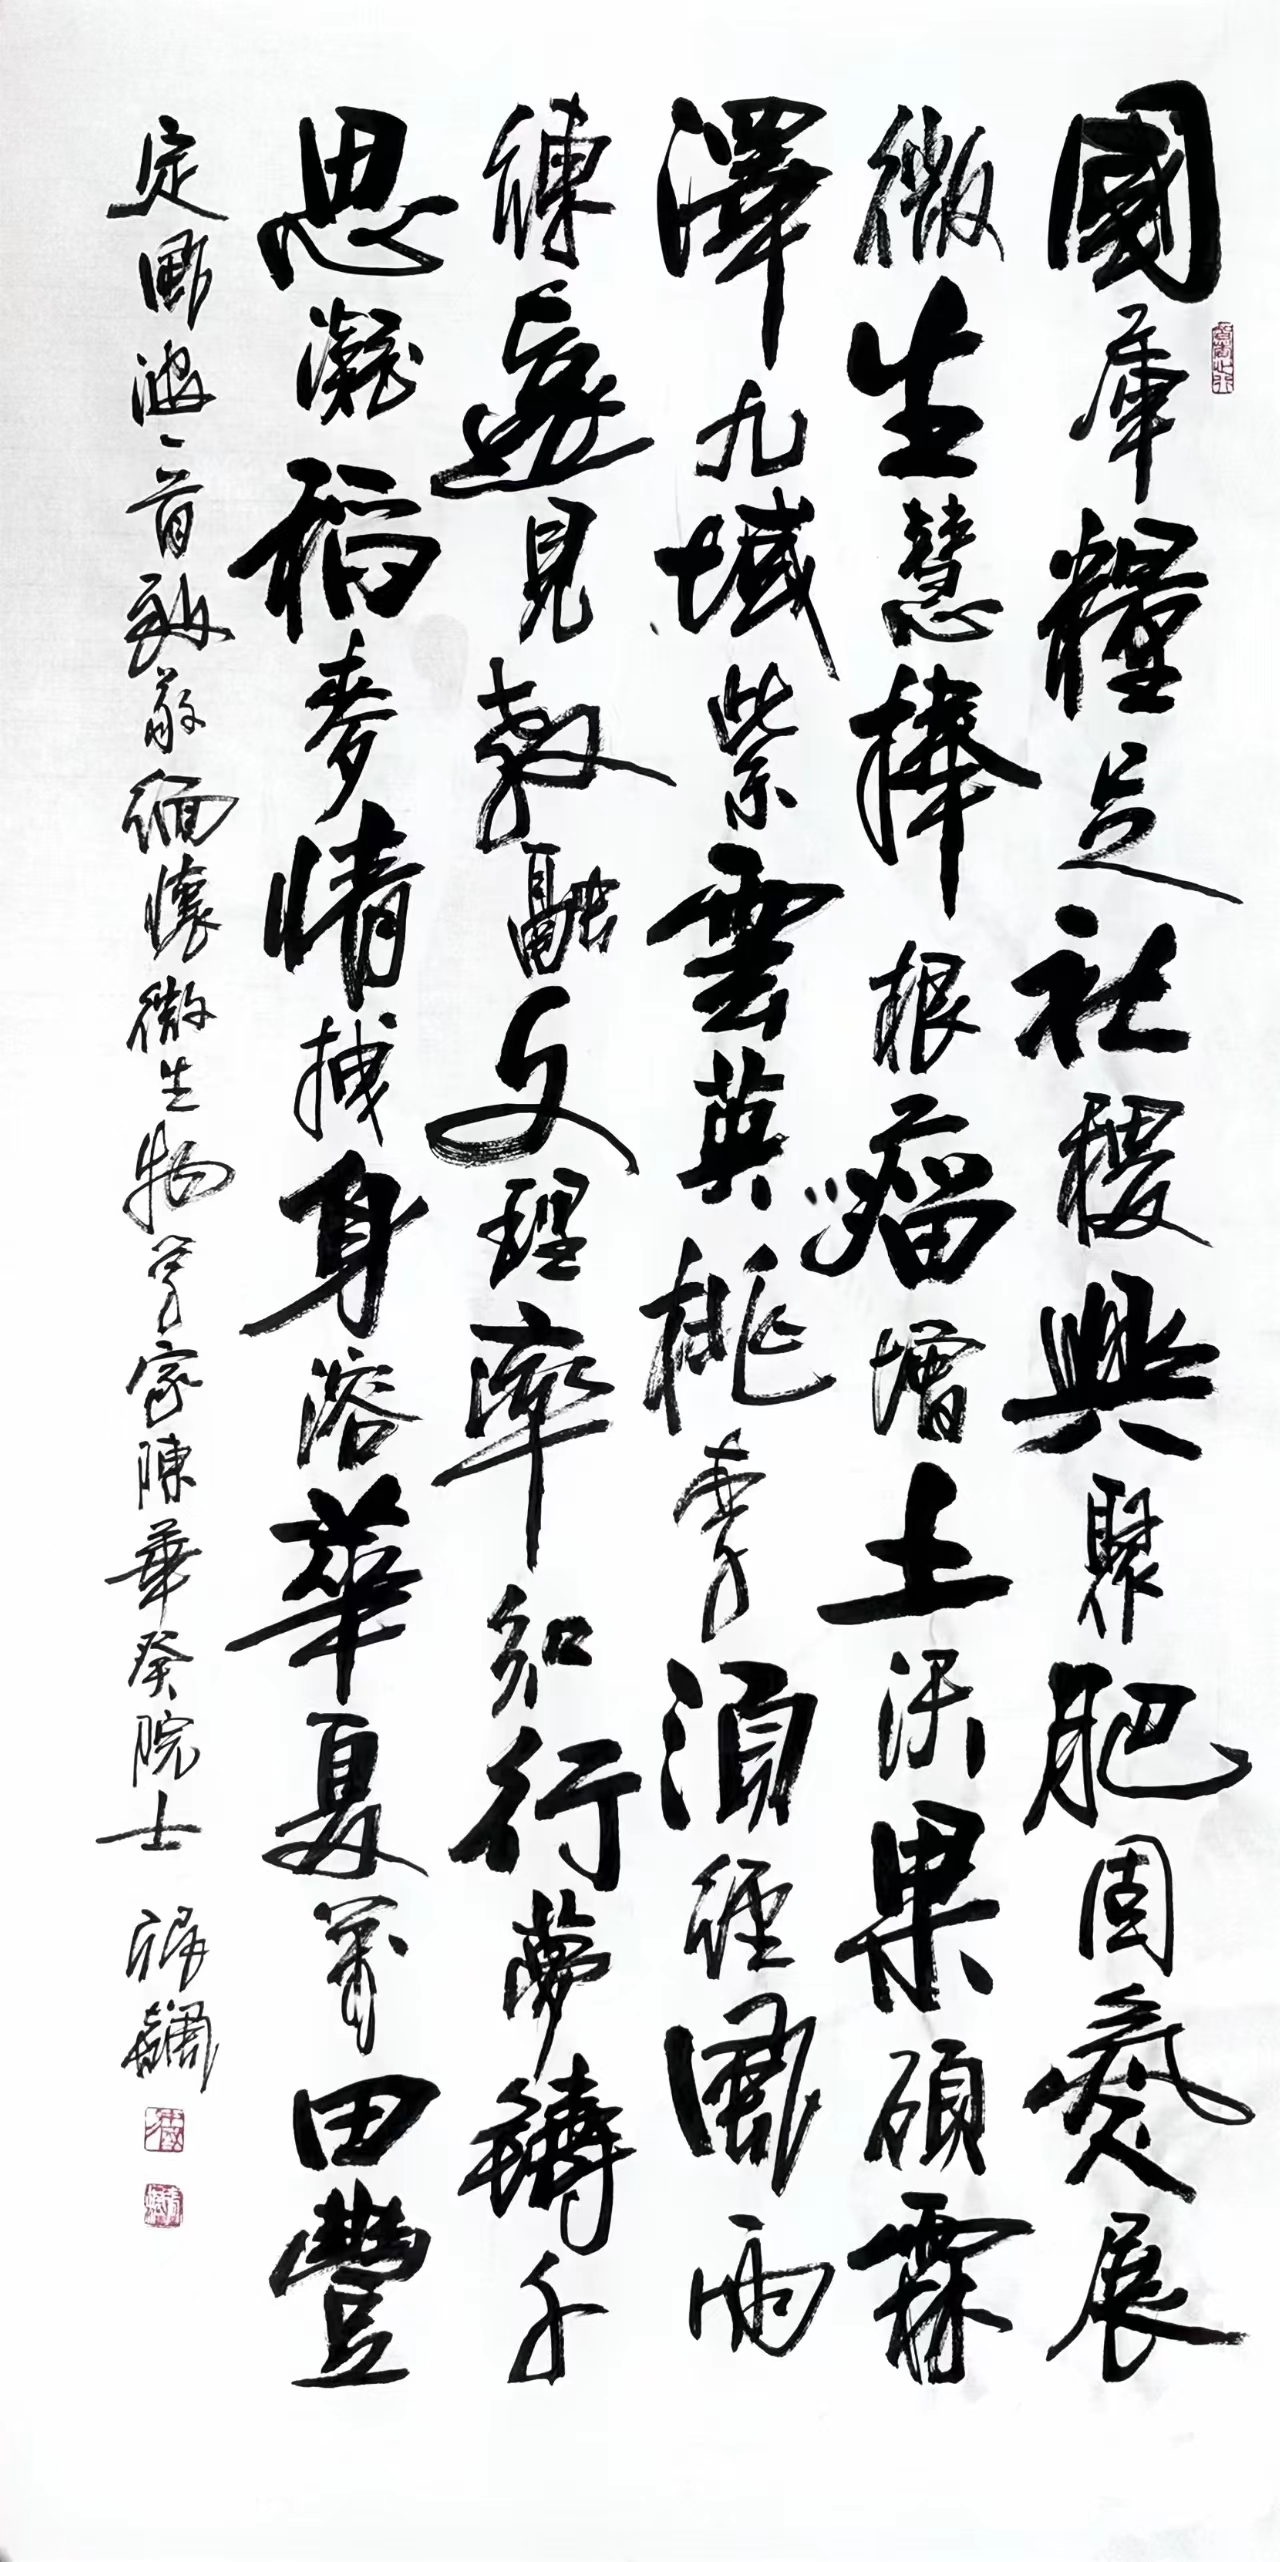 國庫糧足社稷興聚肥固氮展
微生慧捧根瘤增土沃果碩霖
澤九域紫雲英桃李須經風雨
練遠見敦融文理率知行夢鑄千
思凝稻麥情拽身溶華夏萬田豐
定風波一首敬緬懷微生物學家陳華癸院士